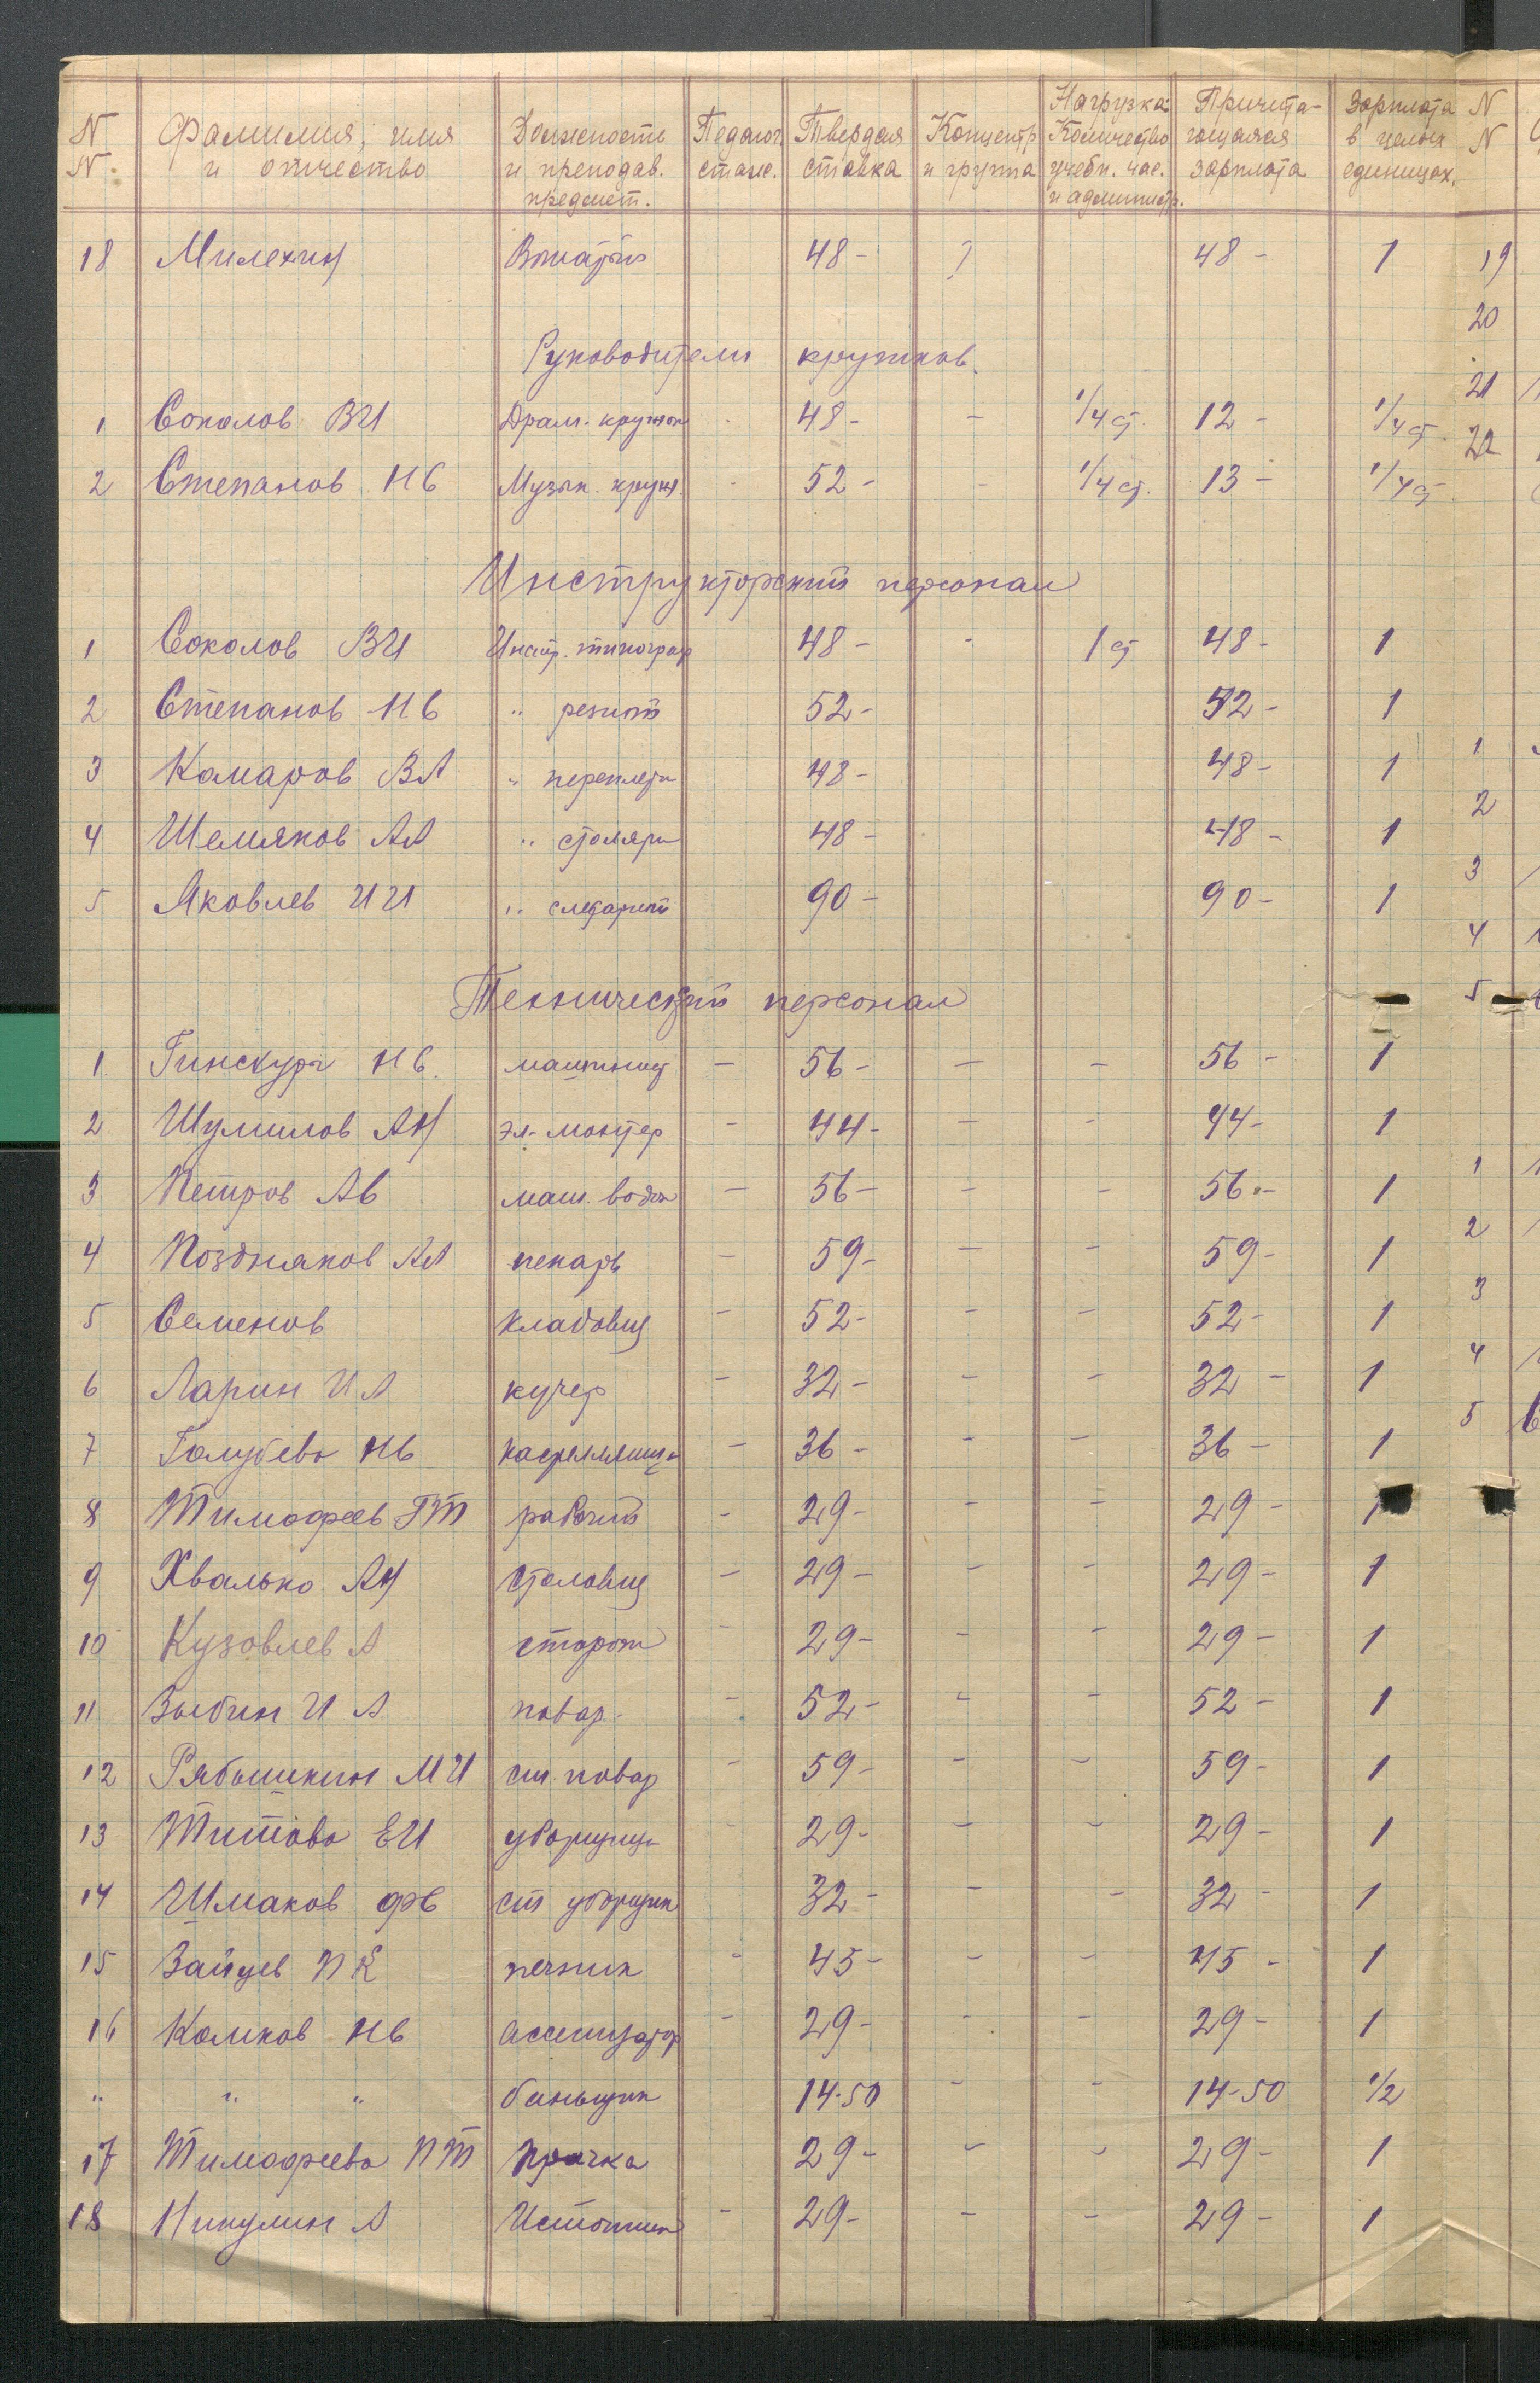 N N. Фамилия, имя и отчество Должность и преподав. предмет. Педагог. стаж. Твердая ставка Концентр и группа Нагрузка: Количество учебн. час. и администр. Причита-ющаяся зарплата Зарплата в целых единицах. N N
18 Милехин Вожатый 48- 48- 1 19
20
Руководители кружков.
21
1 Соколов ВИ Драм. кружок - 48- - 1/4 ст. 12- 1/4 ст.
22
2 Степанов НВ Музык. круж. - 52- - 1/4 ст. 13- 1/4 ст
Инструкторский персонал
1 Соколов ВИ Инстр. типограф 48- - 1 ст 48- 1
2 Степанов НВ " 52- 52- 1
3 Комаров ВА " переплетн 48- 48- 1 1
4 Шемяков АА " столярн 48- 48- 1 2
5 Яковлев ИИ " слесарный 90- 90- 1 3
4
Технический персонал 5
1. НВ. машинист - 56- - - 56- 1
2 Шумилов АН эл-монтер - 44- - - 44- 1
3 Петров АВ маш. водок - 56- - - 56- 1 1
4 Поздняков АА пекарь - 59- - - 59- 1 2
5 Семенов кладовщ - 52- - - 52- 1 3
6 Ларин ИА кучер - 32- - - 32- 1 4
7 Голубева НВ кастелянша - 36- - - 36- 1 5
8 Тимофеев ГТ рабочий - 29- - - 29- 1
9 Хвалько АН столовщ - 29- - - 29- 1
10 Кузовлев А сторож - 29- - - 29- 1
11 Зыбин И А повар - 52- - - 52- 1
12 Рябышкин МИ ст. повар - 59- - - 59- 1
13 Титова ЕИ уборщица - 29- - - 29- 1
14 Шмаков ФВ ст уборщик 32- - - 32- 1
15 Зайцев ПК печник - 45- - - 45- 1
16 Комков НВ ассенизатор - 29- - - 29- 1
" " " баньщик 14-50 - - 14-50 1/2
17 Тимофеева ПТ Прачка 29- - - 29- 1
18 Никулин А Истопник - 29- - - 29- 1